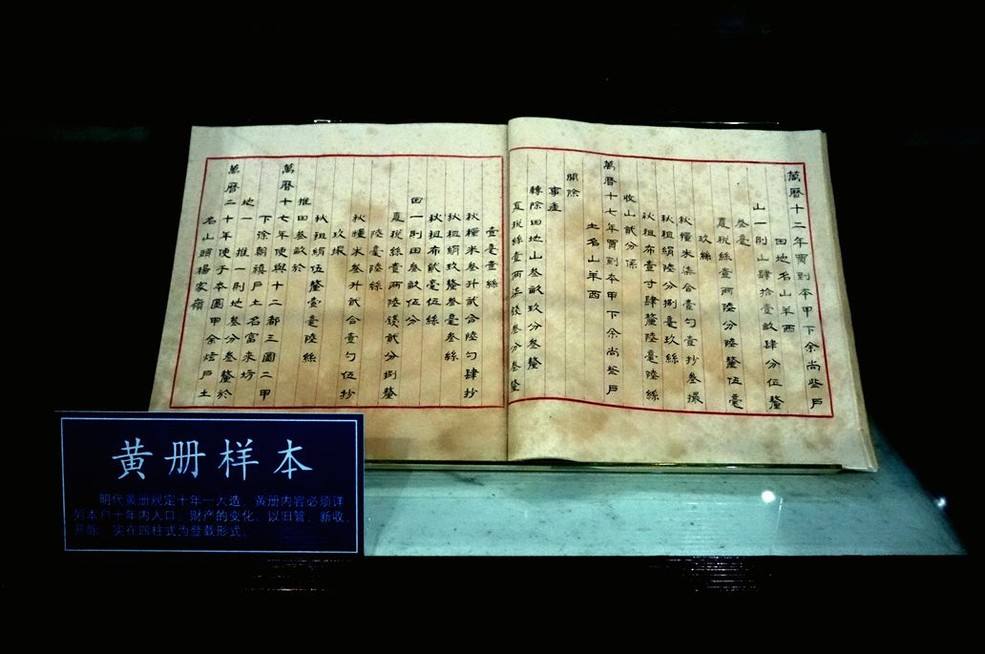 萬曆十二年買到本甲下余尚些戶
田地名山羊西
山一則山肆拾壹畝肆分伍釐
叁毫
夏税絲壹兩陸分陸釐伍毫
玖絲
秋糧米柒合壹勺壹抄叁撮
秋租絹陸分捌毫玖絲
秋租布壹寸肆釐陸毫陸絲
收山貳分係
萬曆十七年買到本甲下余尚些戶
土名山羊西
開除
事產
轉除田地山叁畝玖分叁釐
夏税絲壹兩柒錢叁分叁釐
壹毫壹絲
秋糧米叁升貳合陸勺肆抄
秋租絹玖釐叁毫叁絲
秋租布貳毫伍絲
田一則田叁畝伍分
夏税絲壹兩陸錢貳分捌釐
陸毫陸絲
秋糧米叁升貳合壹勺伍抄
玖撮
秋租絹伍釐壹毫陸絲
推田叁畝於
萬曆十七年使與十二都三圖二甲
下徐朝禎戶土名富來坞
地一 推一則地叁分叁釐於
萬曆二十年使于本圖甲余焙戶土
名山頭楊家嶺
黄册样本
明代黄册规定十年一大造，黄册内容必须详
列本户十年内人口、财产的变化，以旧管、新收、
开除、实在四柱式为登载形式。